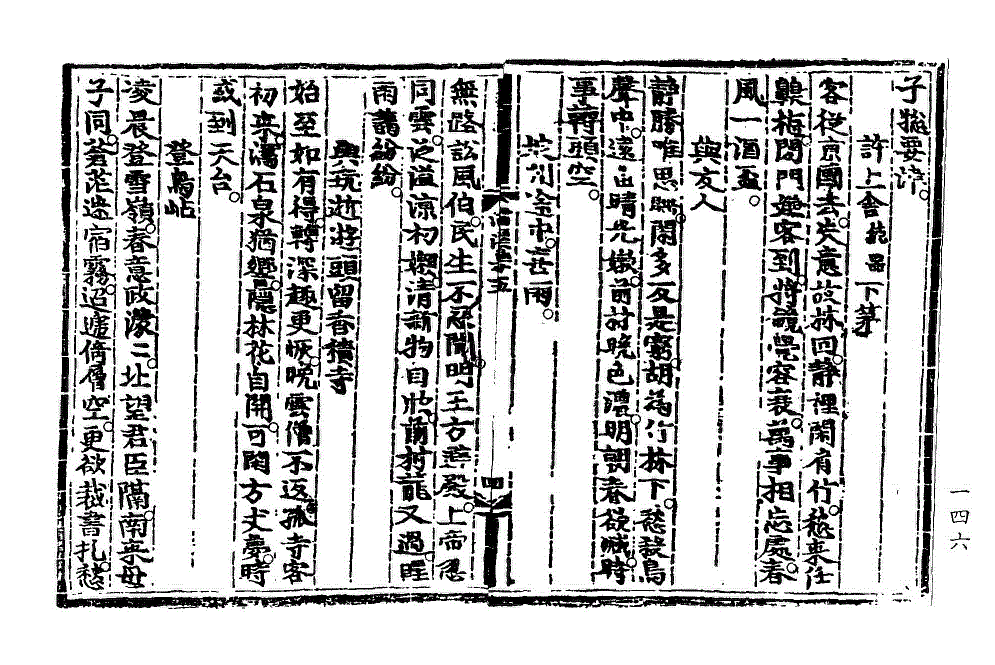 子聡要詩
許上舍於器下第
客從京國去失意故林回靜裡閑看竹愁來任
嗅梅閉門嫌客到將鏡覺容衰萬事相忘處春
風一酒盃
與友人
靜勝唯思睡閑多反是窮胡爲竹林下愁殺鳥
聲中遠出晴光嫩前村晩色濃明朝春欲減時
事轉頭空
途中甚雨
無路訟風伯民生不忍聞明王方避殿上帝忍
同雲泛溢凉初禊清新物自欣前村龍又過睚
雨譪紛紛
與玩逝將頭留香積寺
始至如有得轉深趣更恢晩雲僧不返孤寺客
初來濕石泉猶響隱林花自開可閑方丈夢時
或到天台
登鳥岾
凌晨登雪嶺春意政濛二北望君臣隔南來母
子同蒼茫迷宿霧迢遞倚層空更欲裁書札愁
四
一四六